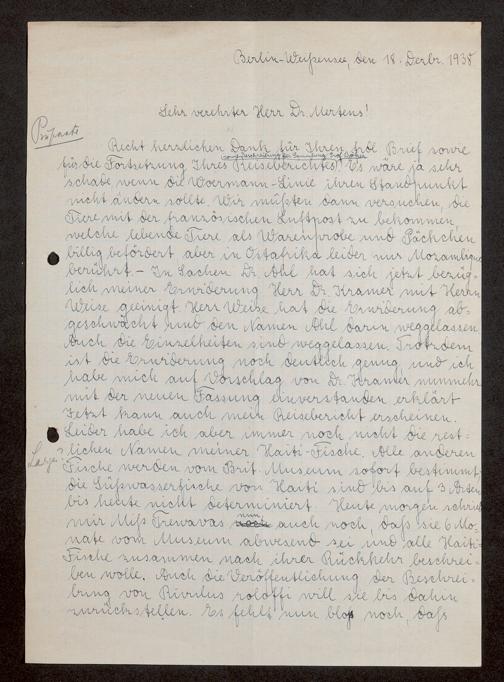 Berlin-Weißensee, den 18. Dezbr. 1938
Sehr verehrter Herr Dr. Mertens!
Recht herzlichen Dank für Ihren frdl. Brief sowie
für die Fortsetzung Ihres Reiseberichtes! Es wäre ja sehr
schade wenn die Woermann-Linie ihren Standpunkt
nicht ändern sollte. Wir müßten dann versuchen, die
Tiere mit der französischen Luftpost zu bekommen,
welche lebende Tiere als Warenprobe und Päckchen
billig befördert aber in Ostafrika leider nur Mozambique
berührt. – In Sachen Dr. Ahl hat sich jetzt bezüg-
lich meiner Erwiderung Herr Dr. Kramer mit Herrn
Weise geeinigt. Herr Weise hat die Erwiderung ab-
geschwächt und den Namen Ahl darin weggelassen.
Auch die Einzelheiten sind weggelassen. Trotzdem
ist die Erwiderung noch deutlich genug und ich
habe mich auf Vorschlag von Dr. Kramer nunmehr
mit der neuen Fassung einverstanden erklärt.
Jetzt kann auch mein Reisebericht erscheinen.
Leider habe ich aber immer noch nicht die rest-
lichen Namen meiner Haiti-Fische. Alle anderen
Fische werden vom Brit. Museum sofort bestimmt,
die Süßwasserfische von Haiti sind bis auf 3 Arten
bis heute nicht determiniert. Heute morgen schrieb
mir Miß Trewavas nun auch noch, daß sie 6 Mo-
nate vom Museum abwesend sei und alle Haiti-
Fische zusammen nach ihrer Rückkehr beschrei-
ben wolle. Auch die Veröffentlichung der Beschrei-
bung von Rivulus roloffi will sie bis dahin
zurückstellen. Es fehlt nun bloß noch, daß